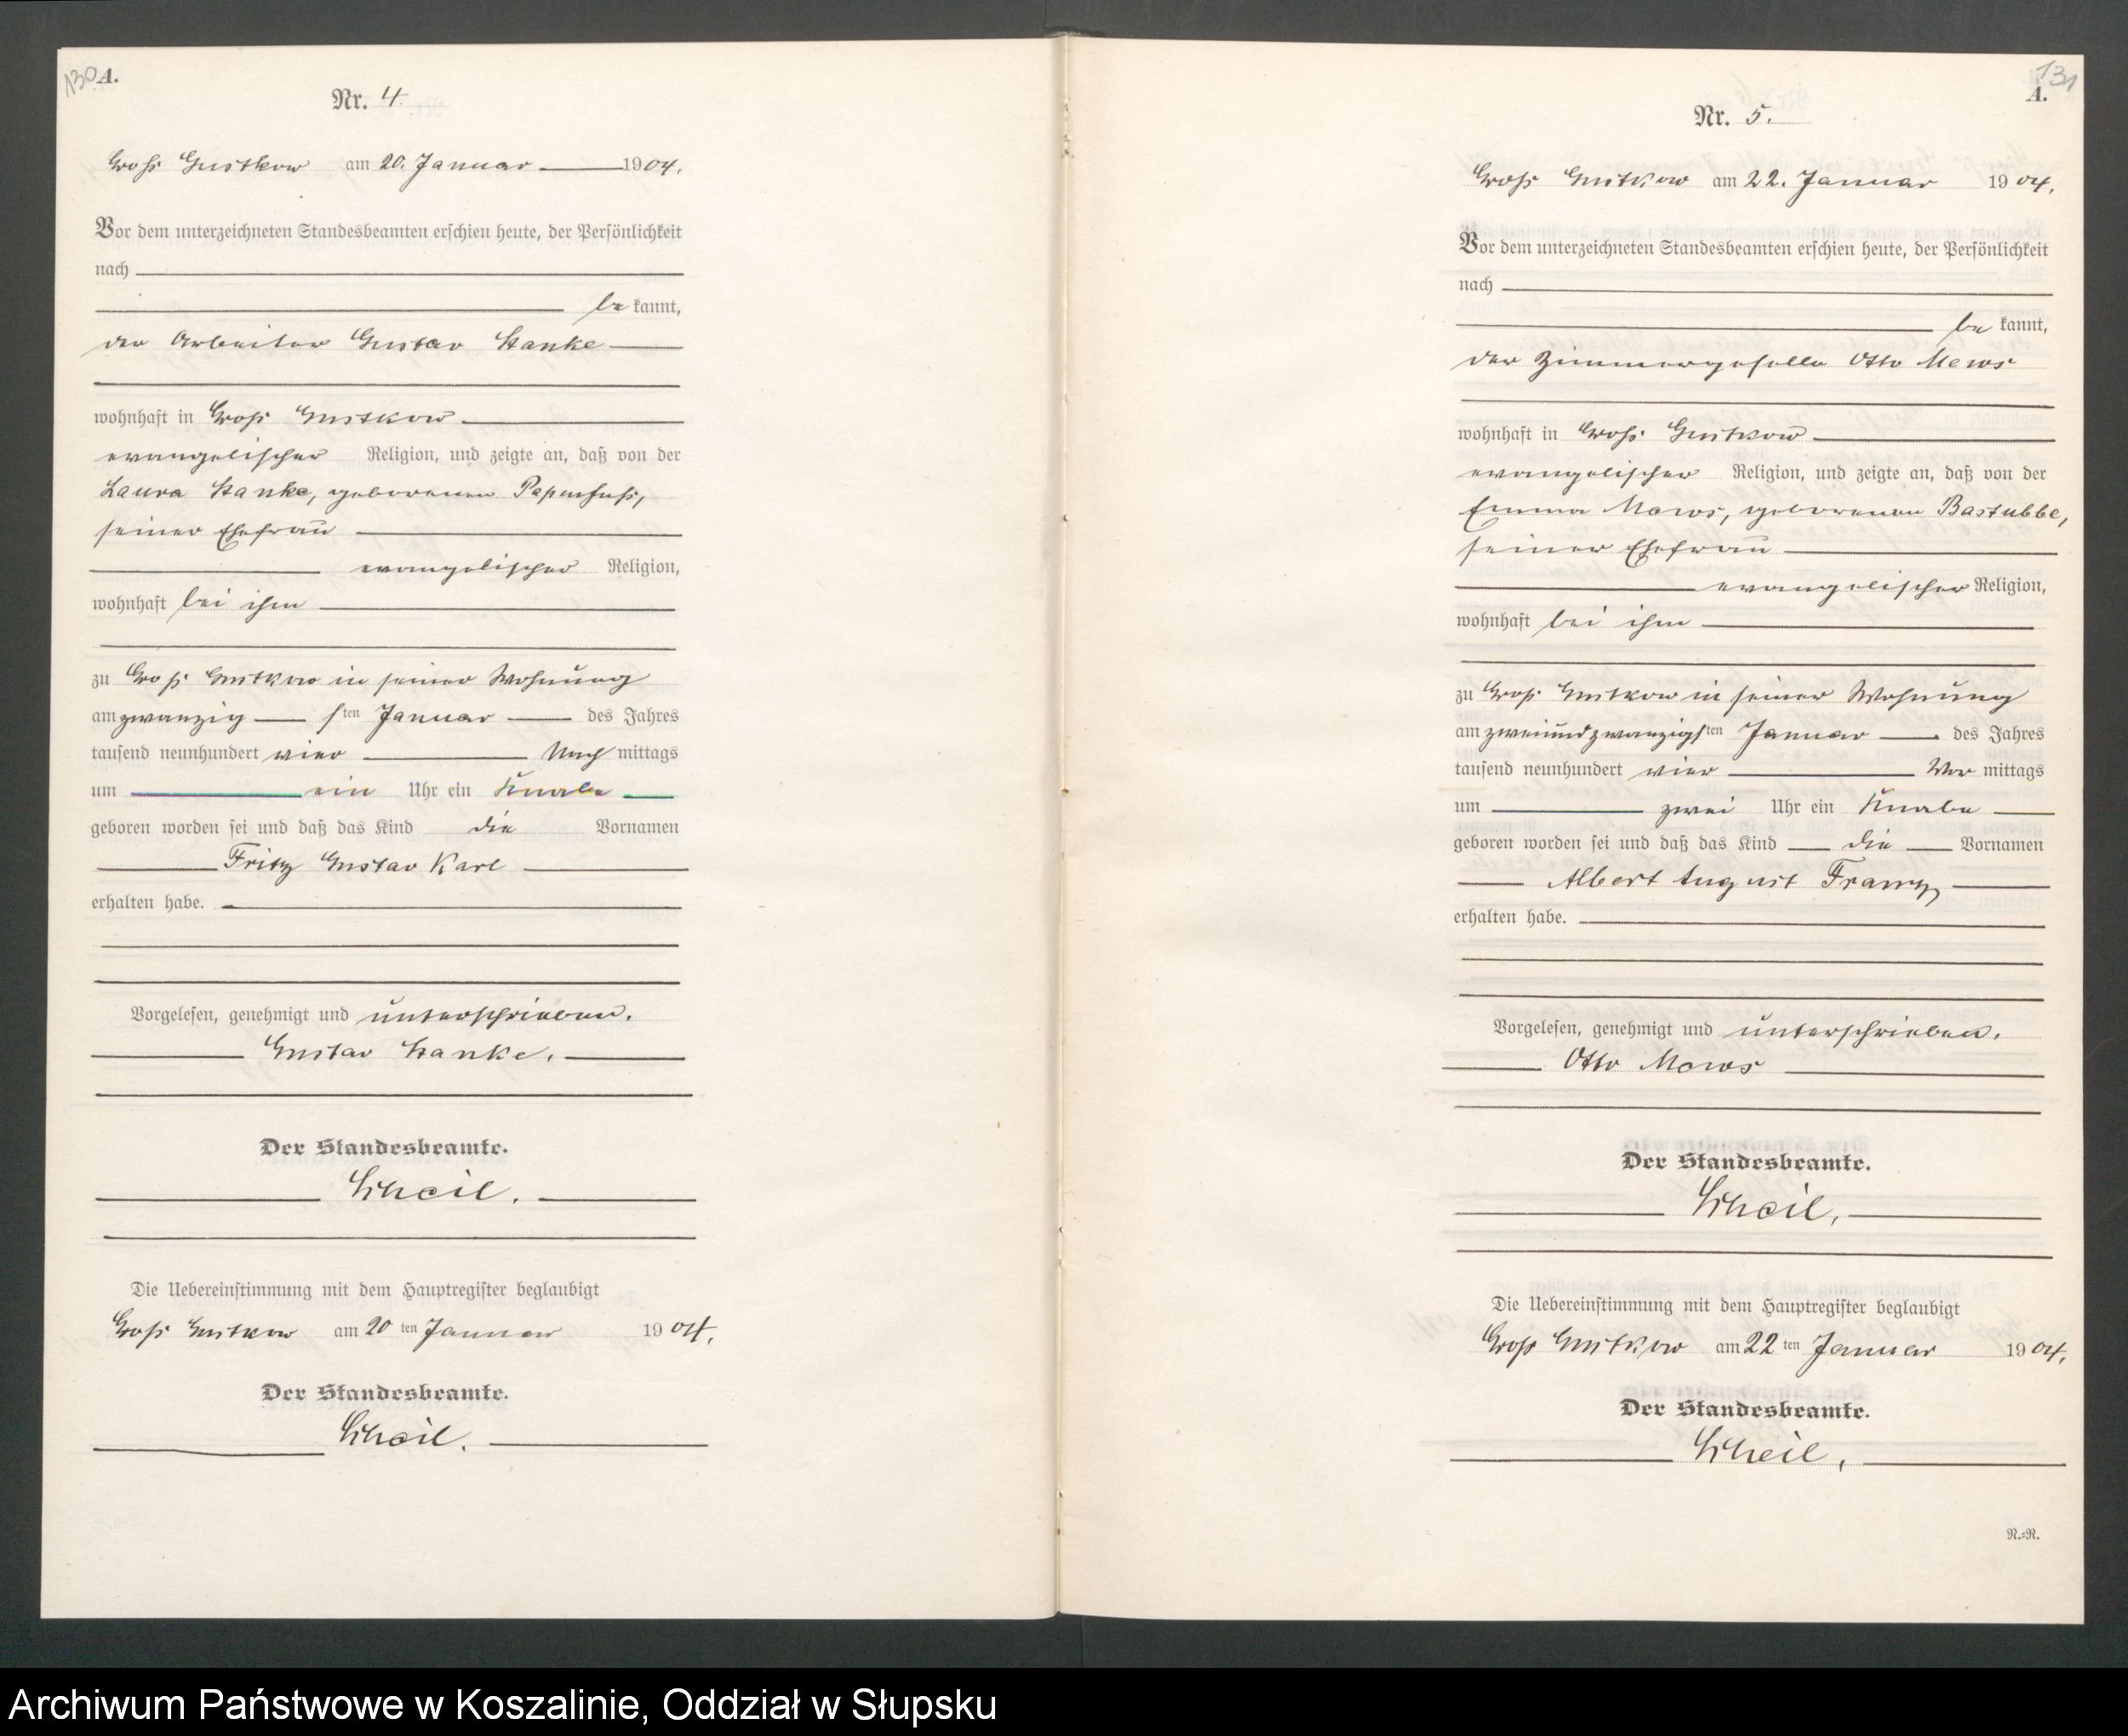 130 A.
Nr. 4.
Groß Gustkow am 20. Januar 1904.
Vor dem unterzeichneten Standesbeamten erschien heute, der Persönlichkeit
nach
be kannt,
der Arbeiter Gustav Hanke
wohnhaft in Groß Gustkow
evangelischer Religion, und zeigte an, daß von der
Laura Hanke, geborenen Papenfuß,
seiner Ehefrau
evangelischer Religion,
wohnhaft bei ihm
zu Groß Gustkow in seiner Wohnung
am zwanzig sten Januar des Jahres
tausend neunhundert vier Nach mittags
um ein Uhr ein Knabe
geboren worden sei und daß das Kind die Vornamen
Fritz Gustav Karl
erhalten habe.
Vorgelesen, genehmigt und unterschrieben.
Gustav Hanke.
Der Standesbeamte.
Scheil.
Die Uebereinstimmung mit dem Hauptregister beglaubigt
Groß Gustkow am 20 ten Januar 1904.
Der Standesbeamte.
Scheil.
131
A.
Nr. 5.
Groß Gustkow am 22. Januar 1904.
Vor dem unterzeichneten Standesbeamten erschien heute, der Persönlichkeit
nach
be kannt,
der Zimmergeselle Otto Mews
wohnhaft in Groß Gustkow
evangelischer Religion, und zeigte an, daß von der
Emma Mews, geborenen Bastubbe,
seiner Ehefrau
evangelischer Religion,
wohnhaft bei ihm
zu Groß Gustkow in seiner Wohnung
am zweiundzwanzigsten Januar des Jahres
tausend neunhundert vier Vor mittags
um zwei Uhr ein Knabe
geboren worden sei und daß das Kind die Vornamen
Albert August Franz
erhalten habe.
Vorgelesen, genehmigt und unterschrieben.
Otto Mews
Der Standesbeamte.
Scheil.
Die Uebereinstimmung mit dem Hauptregister beglaubigt
Groß Gustkow am 22 ten Januar 1904.
Der Standesbeamte.
Scheil.
R.=R.
Archiwum Państwowe w Koszalinie, Oddział w Słupsku